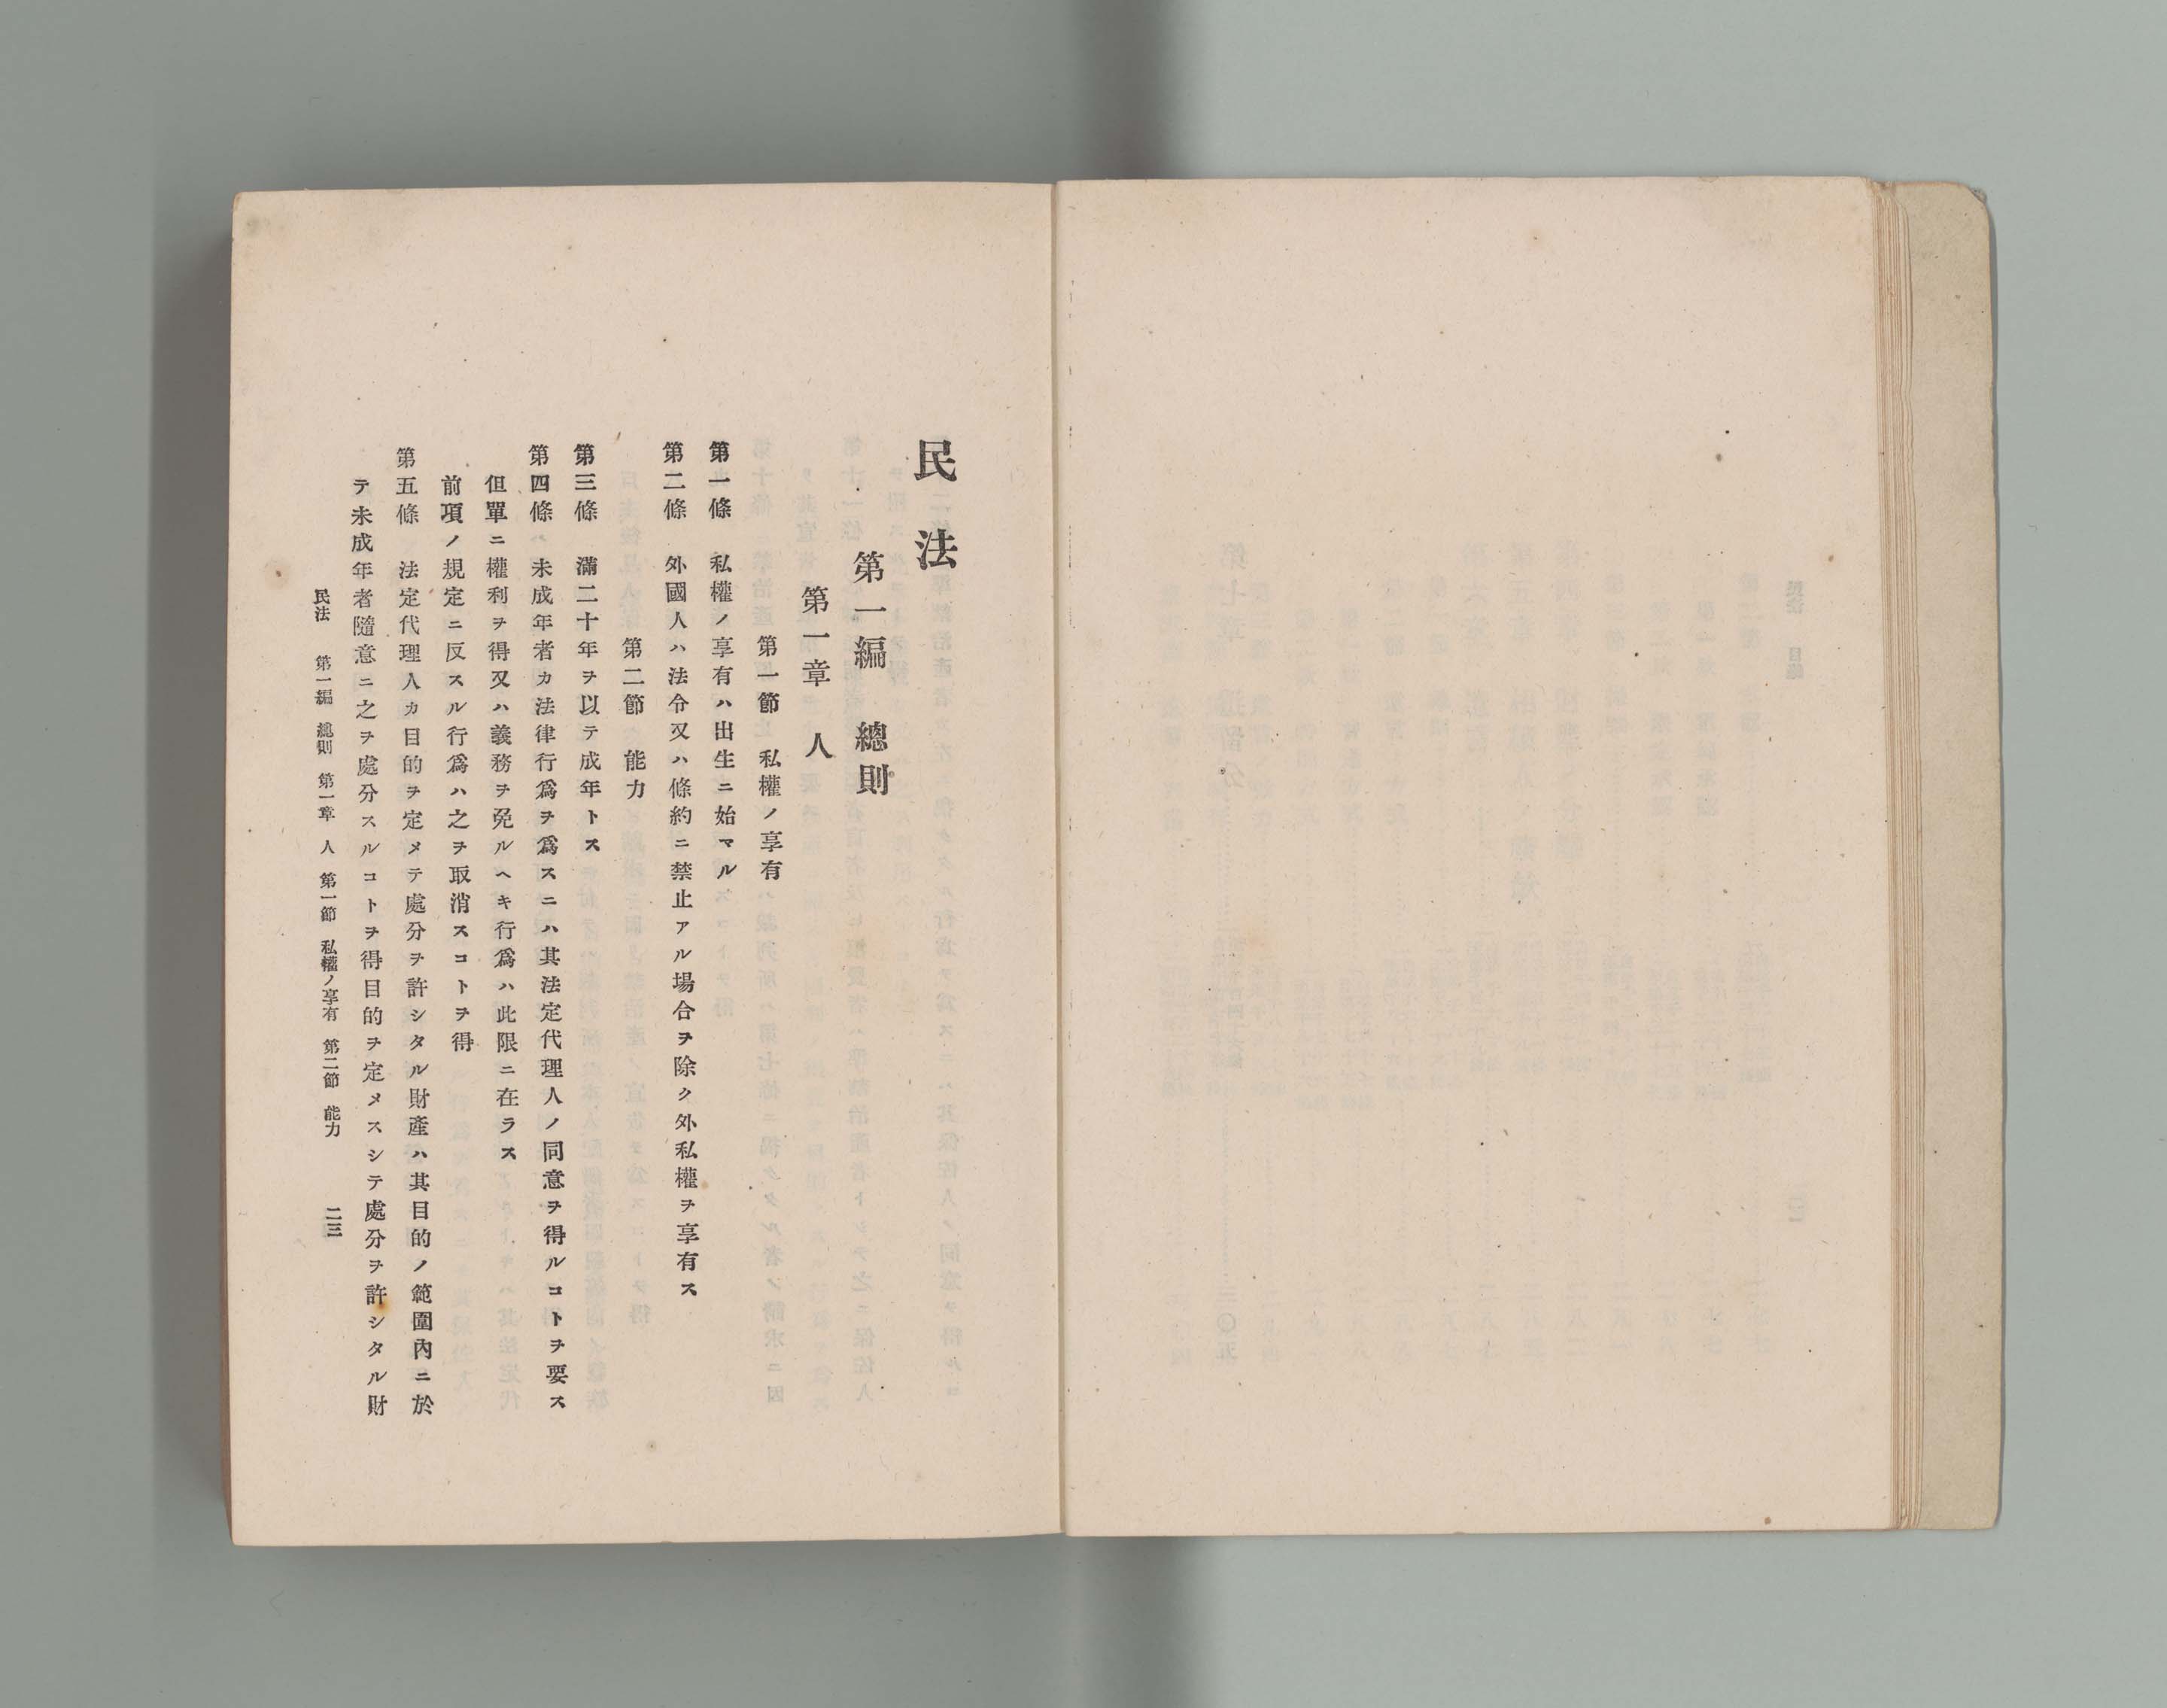 民法
第一編　總則
第一章　人
第一節　私權ノ享有
第一條　私權ノ享有ハ出生ニ始マル
第二條　外國人ハ法令又ハ條約ニ禁止アル場合ヲ除ク外私權ヲ享有ス
第二節　能力
第三條　滿二十年ヲ以テ成年トス
第四條　未成年者カ法律行爲ヲ爲スニハ其法定代理人ノ同意ヲ得ルコトヲ要ス
但單ニ權利ヲ得又ハ義務ヲ免ルヘキ行爲ハ此限ニ在ラス
前項ノ規定ニ反スル行爲ハ之ヲ取消スコトヲ得
第五條　法定代理人カ目的ヲ定メテ處分ヲ許シタル財產ハ其目的ノ範圍內ニ於
テ未成年者隨意ニ之ヲ處分スルコトヲ得目的ヲ定メスシテ處分ヲ許シタル財
民法　第一編　總則　第一章　人　第一節　私權ノ享有　第二節　能力　二三